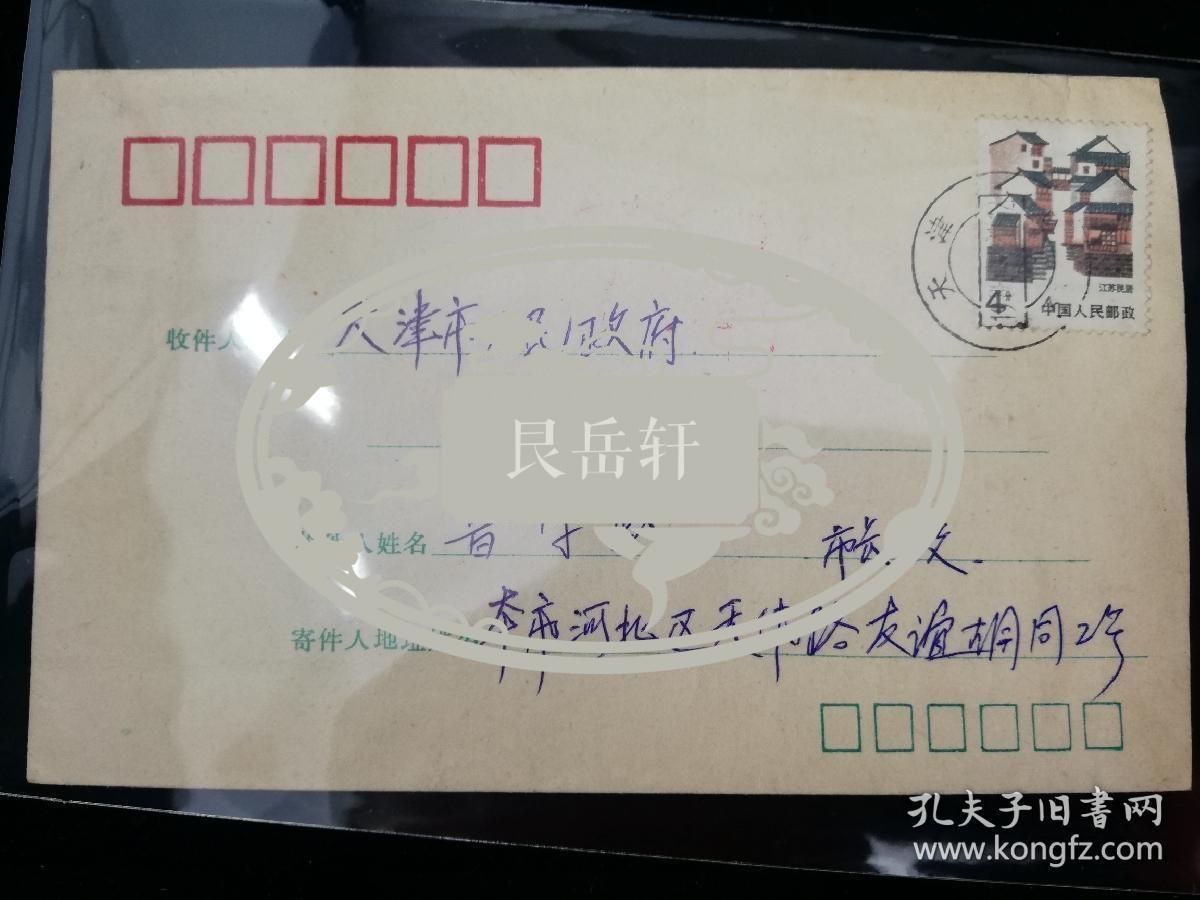 江苏民居
4分
中国人民邮政
天津
收件人
天津市人民政府
艮岳轩
人姓名
市长 文
寄件人地址
本市河北区天纬路友谊胡同2号
孔夫子旧书网
www.kongfz.com